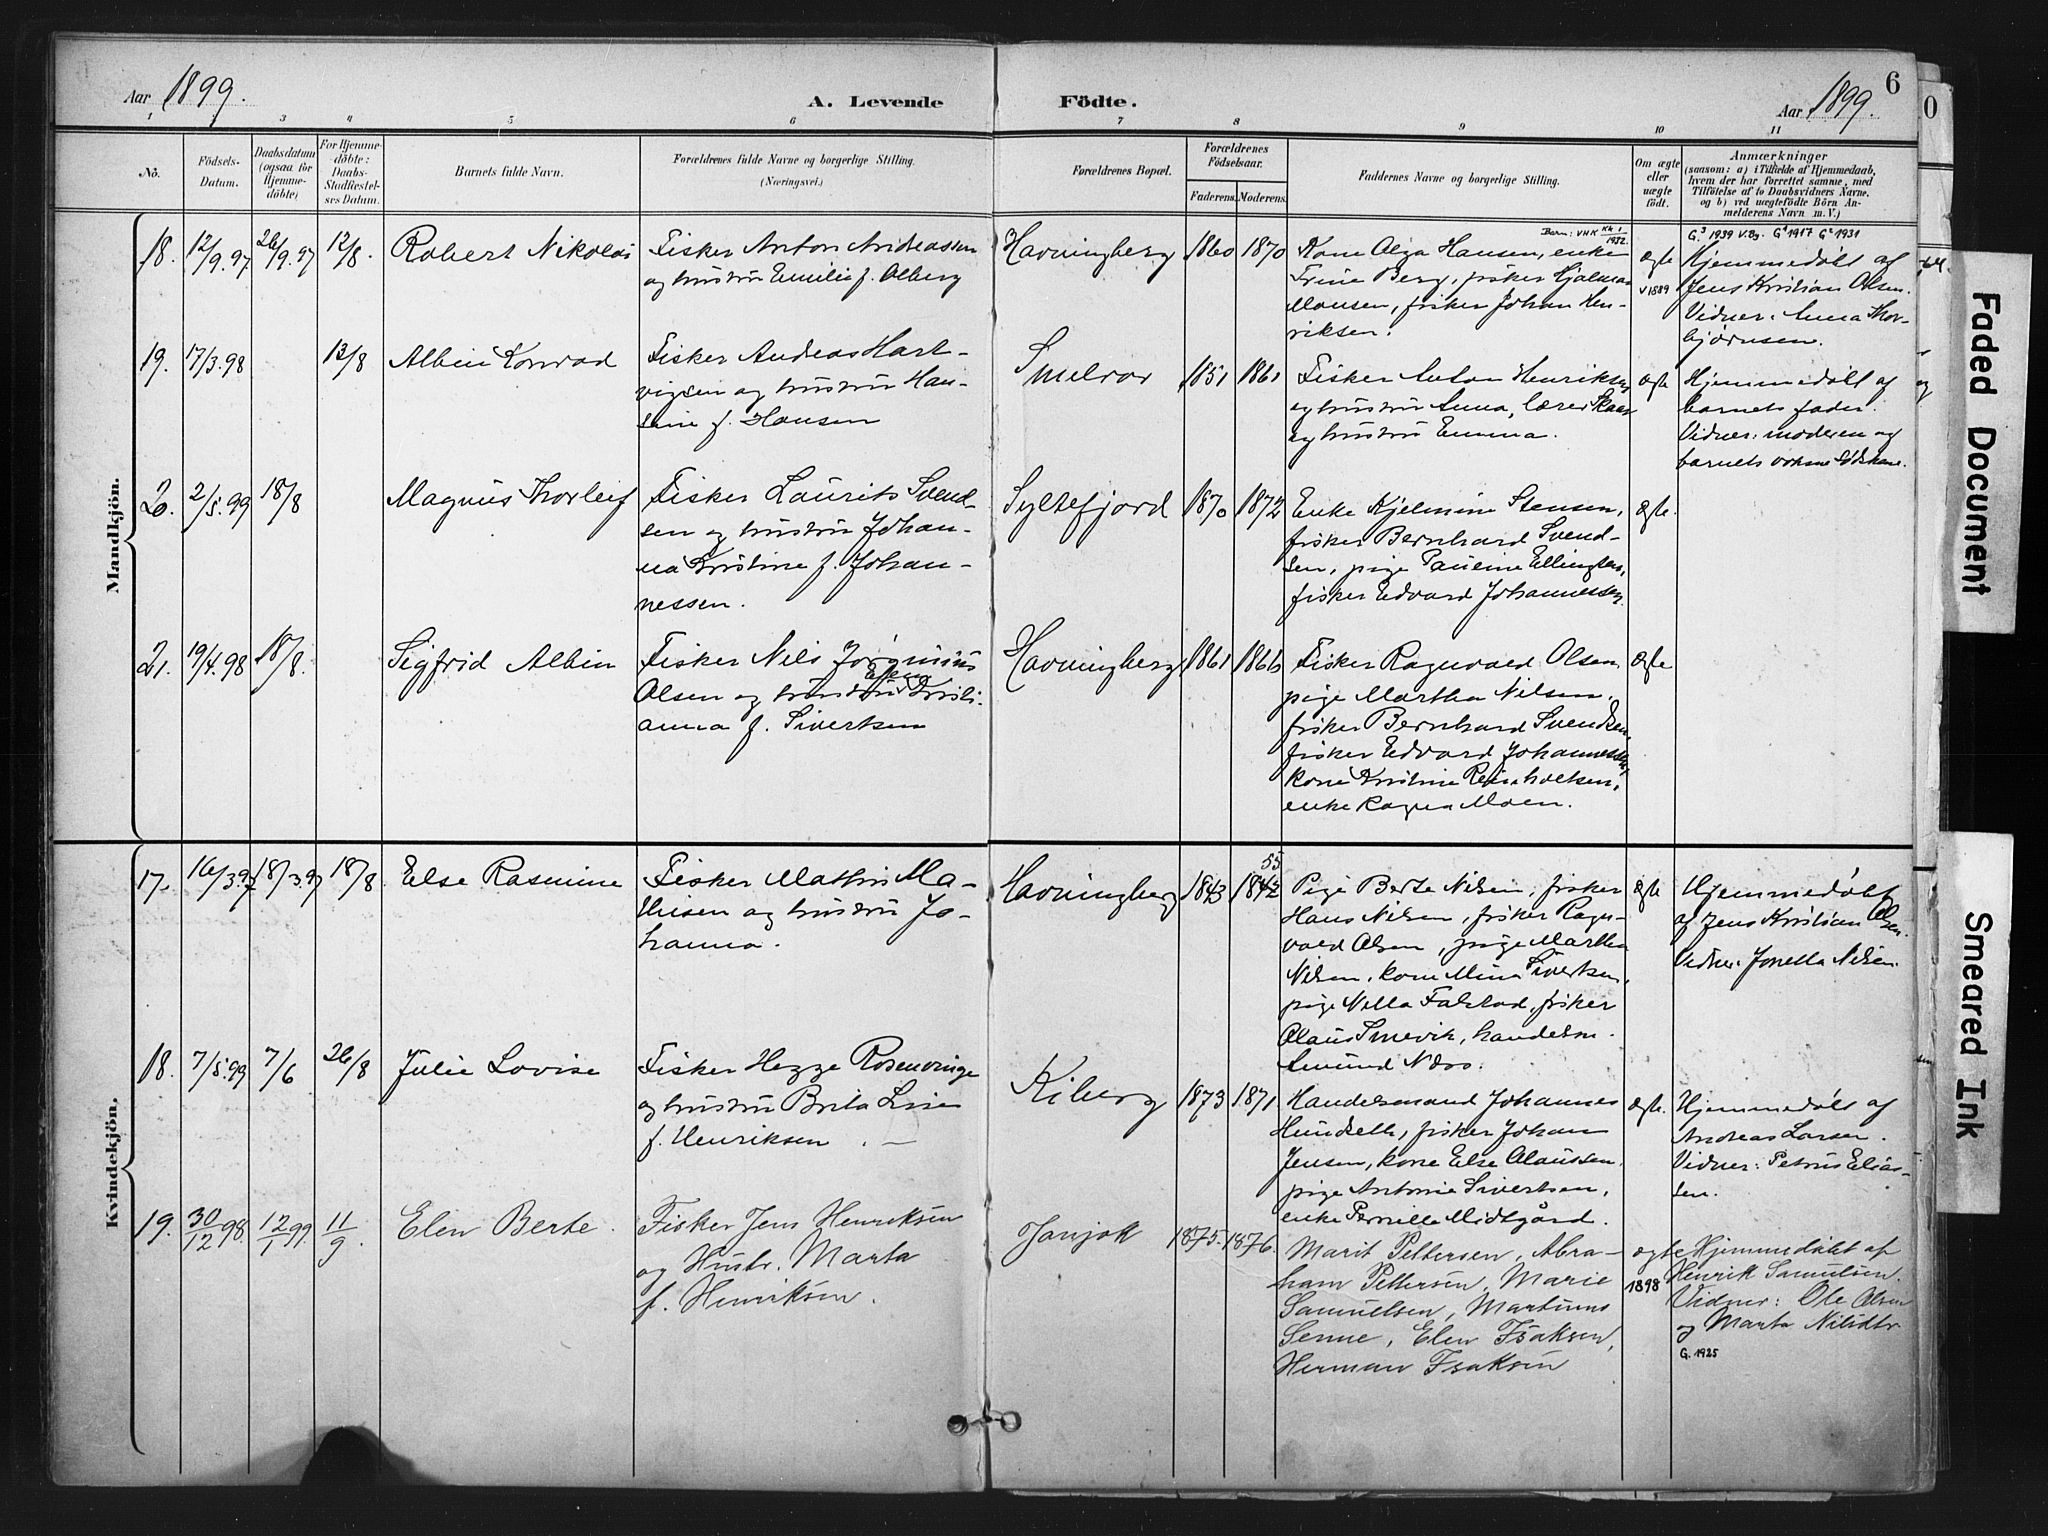 Aar 1899.
A. Levende
Födte.
Aar 1899.
6
1 3 4 5 6 7 8 9 10 11
No.
Födsels-
Datum.
Daabsdatum
(ogsaa for
Hjemme-
döbte)
For Hjemme-
döbte:
Daabs-
Stadfæstel-
ses Datum.
Barnets fulde Navn.
Forældrenes fulde Navne og borgerlige Stilling.
(Næringsvei.)
Forældrenes Bopæl.
Forældrenes
Födselsaar.
Faderens.
Moderens.
Faddernes Navne og borgerlige Stilling.
Om ægte
eller
uægte
födt.
Anmærkninger
(saasom: a) i Tilfælde af Hjemmedaab,
hvem der har forrettet samme, med
Tilföielse af to Daabsvidners Navne.
og b) ved uægtefödte Börn An-
melderens Navn m. V.)
Mandkjön.
18.
12/9.97
26/9.97
12/8.
Robert Nikolai
Fisker Anton Andreassen
og hustru Emilie f. Olberg
Havningberg
1860
1870
Barn: VHK Kh 1
1932
Kone Olga Hansen, enke
Trine Berg, fisker Hjalmar
Monsen, fisker Johan Hen-
riksen.
Ægte
v 1889
G.3 1939 V.By. G1 1917 G2 1931
Hjemmedöbt af
Jens Kristian Olsen.
Vidner: Anna Thor-
bjørnsen.
19.
17/3.98
13/8
Albin Konrad
Fisker Andreas Hart-
vigsen og hustru Han-
sine f. Hansen
Smelror
1851
1861
Fisker Anton Henriksen
og hustru Anna, lærer Skaar
og hustru Emma.
Ægte
Hjemmedöbt af
barnets fader.
Vidner: moderen og
barnets voksne Sødskene.
20.
2/5.99
18/8
Magnus Thorleif
Fisker Laurits Svend-
sen og hustru Johan-
na Kristine f. Johan-
nessen.
Syltefjord
1870
1872
Enke Hjelmine Stensen,
fisker Bernhard Svend-
sen, pige Pauline Ellingsen,
fisker Edvard Johannessen
Ægte.
21.
19/4.98
18/8.
Sigfrid Albin
Fisker Nils Jørginius
Olsen og hustru Elen Kristi-
anna f. Sivertsen
Havningberg
1861
1866
Fisker Ragnvald Olsen,
pige Martha Nilsen,
fisker Bernhard Svendsen,
fisker Edvard Johannessen,
kone Kristine Reinholtsen,
enke Ragna Moen.
Ægte
Kvindekjön.
17.
16/3.97
18/3.97
18/8
Else Rasmine
Fisker Mathis Ma-
thisen og hustru Jo-
hanna.
Havningberg
1843
55
1842
Pige Berte Nilsen, fisker
Hans Nilsen, fisker Ragn-
vald Olsen, pige Martha
Nilsen, kone Mina Sivertsen,
pige Nella Falstad, fisker
Olaus Smevik, handelsm.
Amund Næss.
Ægte
Hjemmedöbt
af Jens Kristian Olsen.
Vidner: Jonetta Nilsen.
18.
7/5.99
7/6
26/8
Julie Lovise
Fisker Hegge Rosenvinge
og hustru Brita Lise
f. Henriksen. —
Kiberg
1873
1871
Handelsmand Johannes
Hundseth, fisker Johan
Jensen, kone Else Olaussen.
pige Antonie Sivertsen,
enke Pernille Midtgård.
Ægte.
Hjemmedöbt af
Andreas Larsen.
Vidner: Petrus Elias-
sen.
19.
30/12 98.
12/1 99.
11/9
Elen Berte.
Fisker Jens Henriksen
og Hustr. Marta
f. Henriksen.
Janjok
1875.
1876.
Marit Pettersen, Abra-
ham Pettersen, Marie
Samuelsen, Martinus
Senne, Elen Isaksen,
Herman Isaksen
ægte
1898
Hjemmedöbt af
Henrik Samulsen.
Vidner: Ole Olsen
og Marta Nilsdtr
G. 1925
Faded Document
Smeared Ink